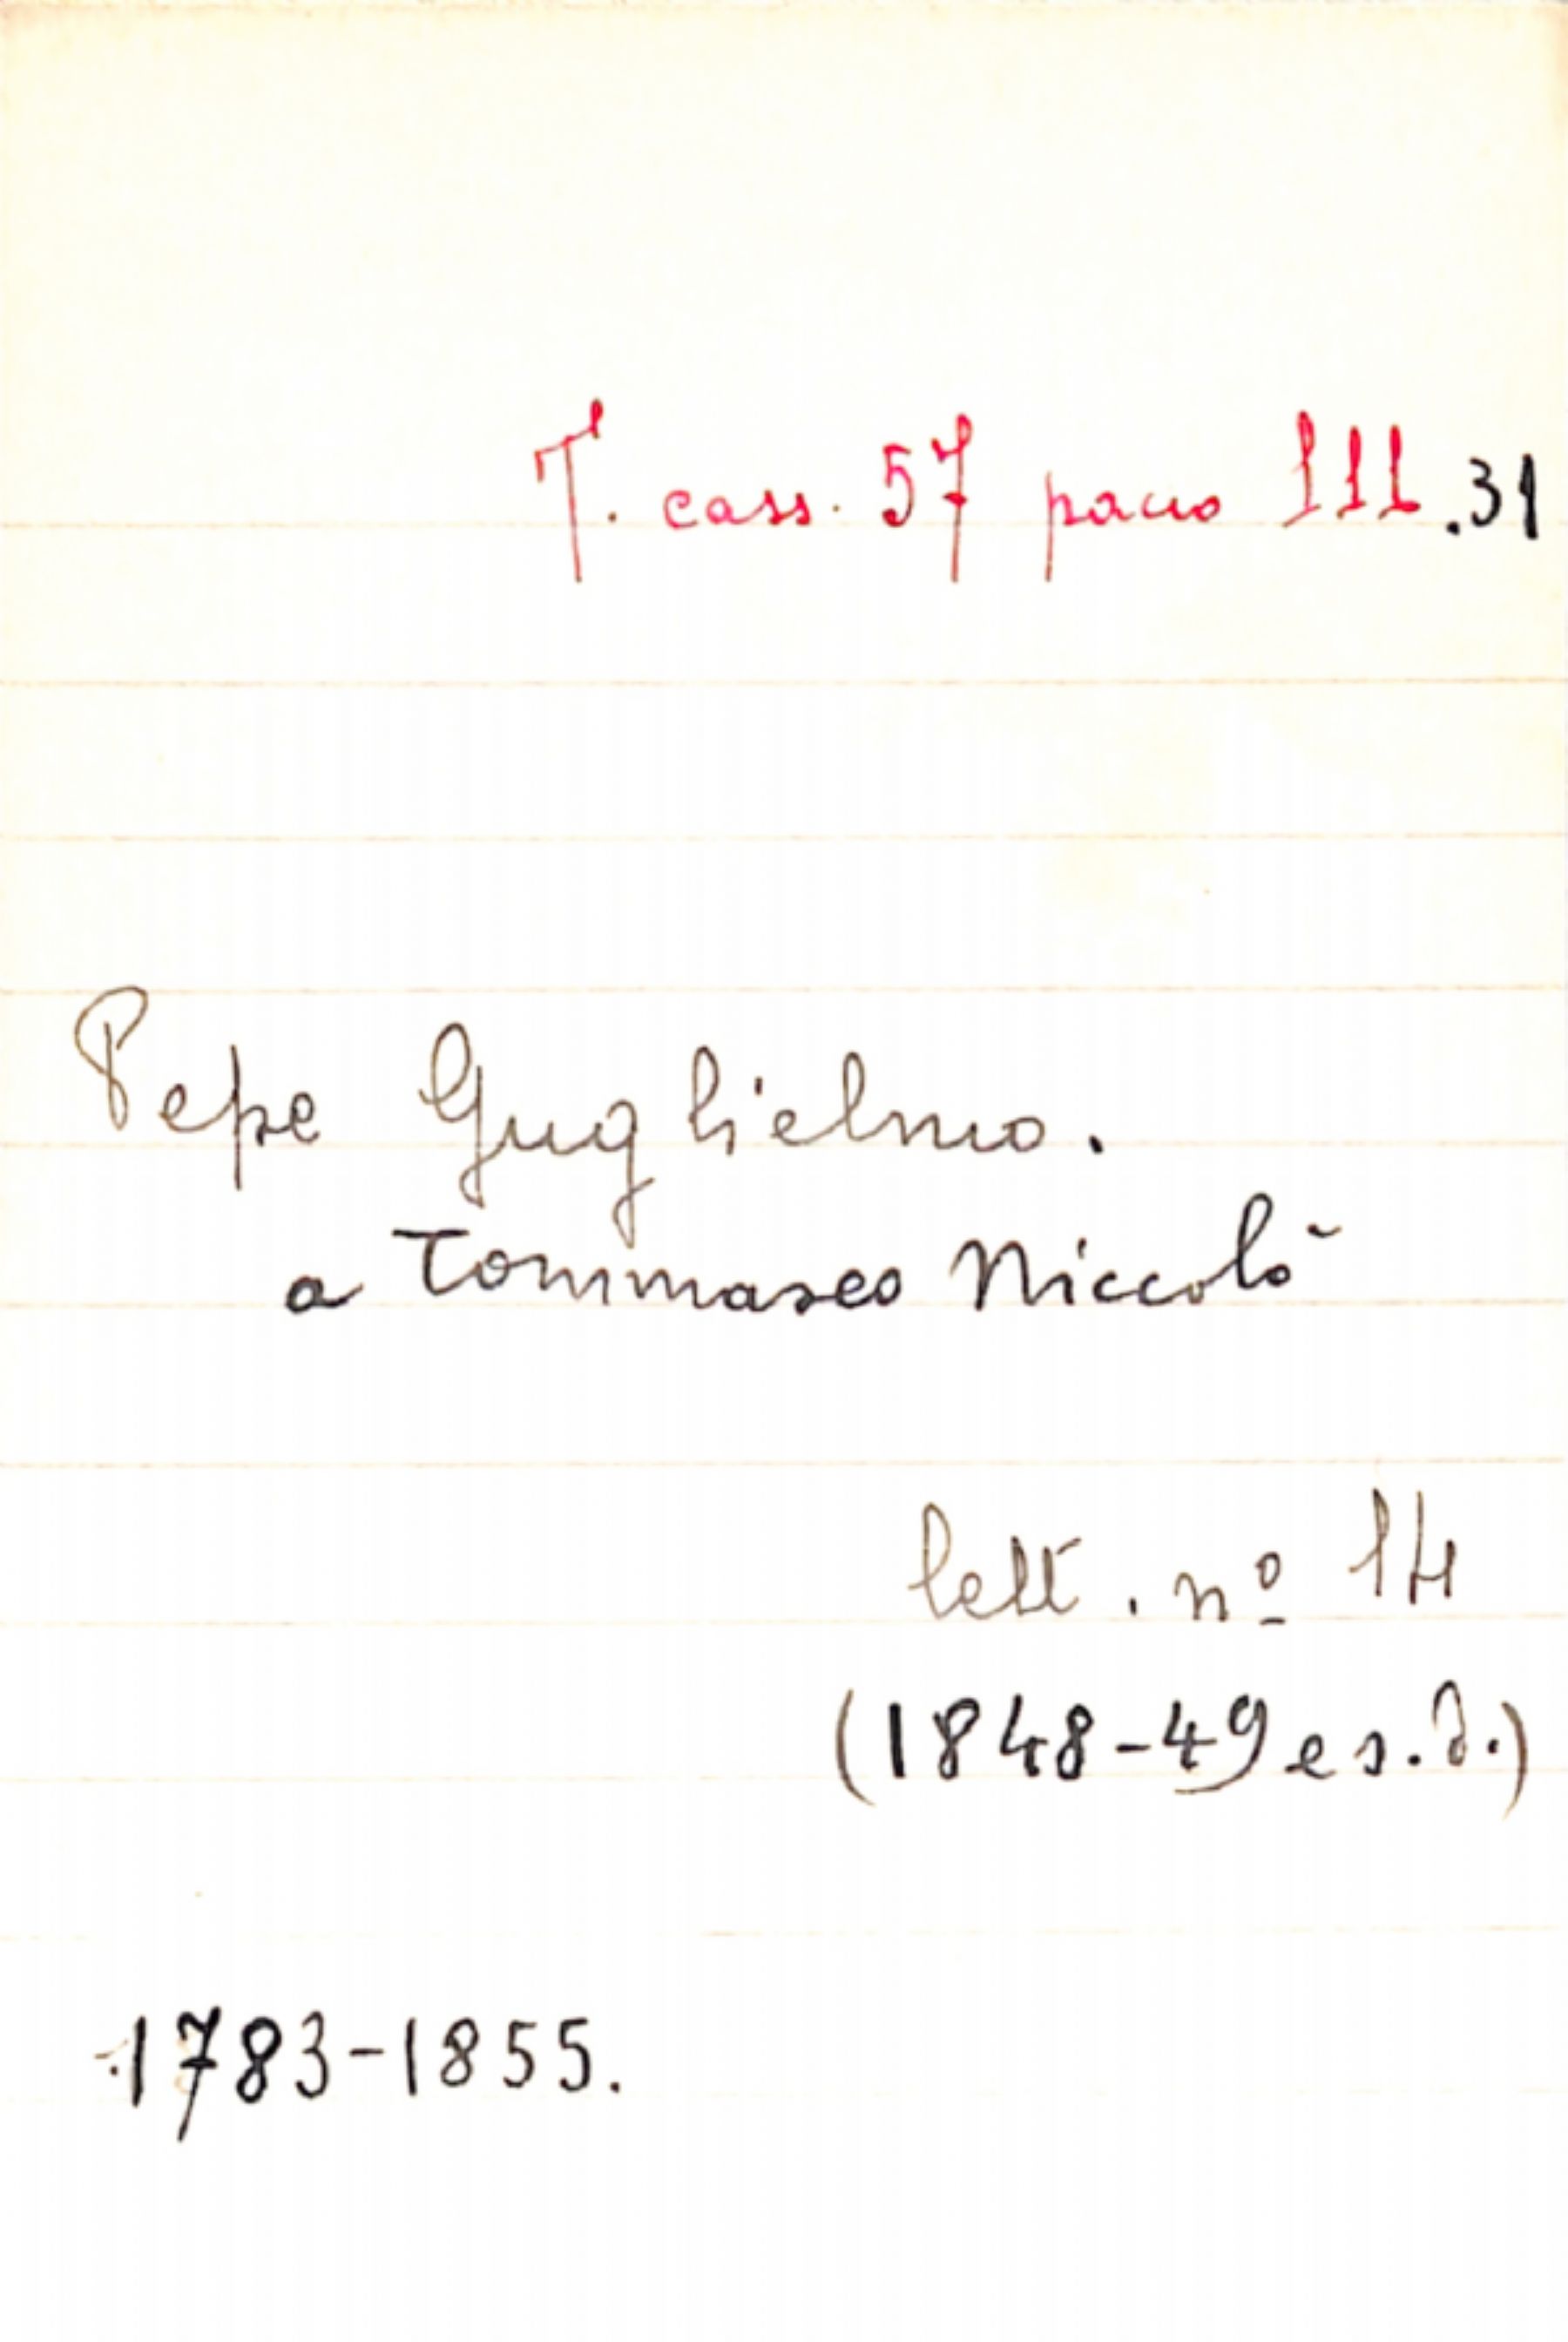 T. cass. 57 pacco III.31
Pepe Guglielmo.
a Tommaseo Niccolò
lett. nº 14
(1848-49 e s.d.)
1783-1855.